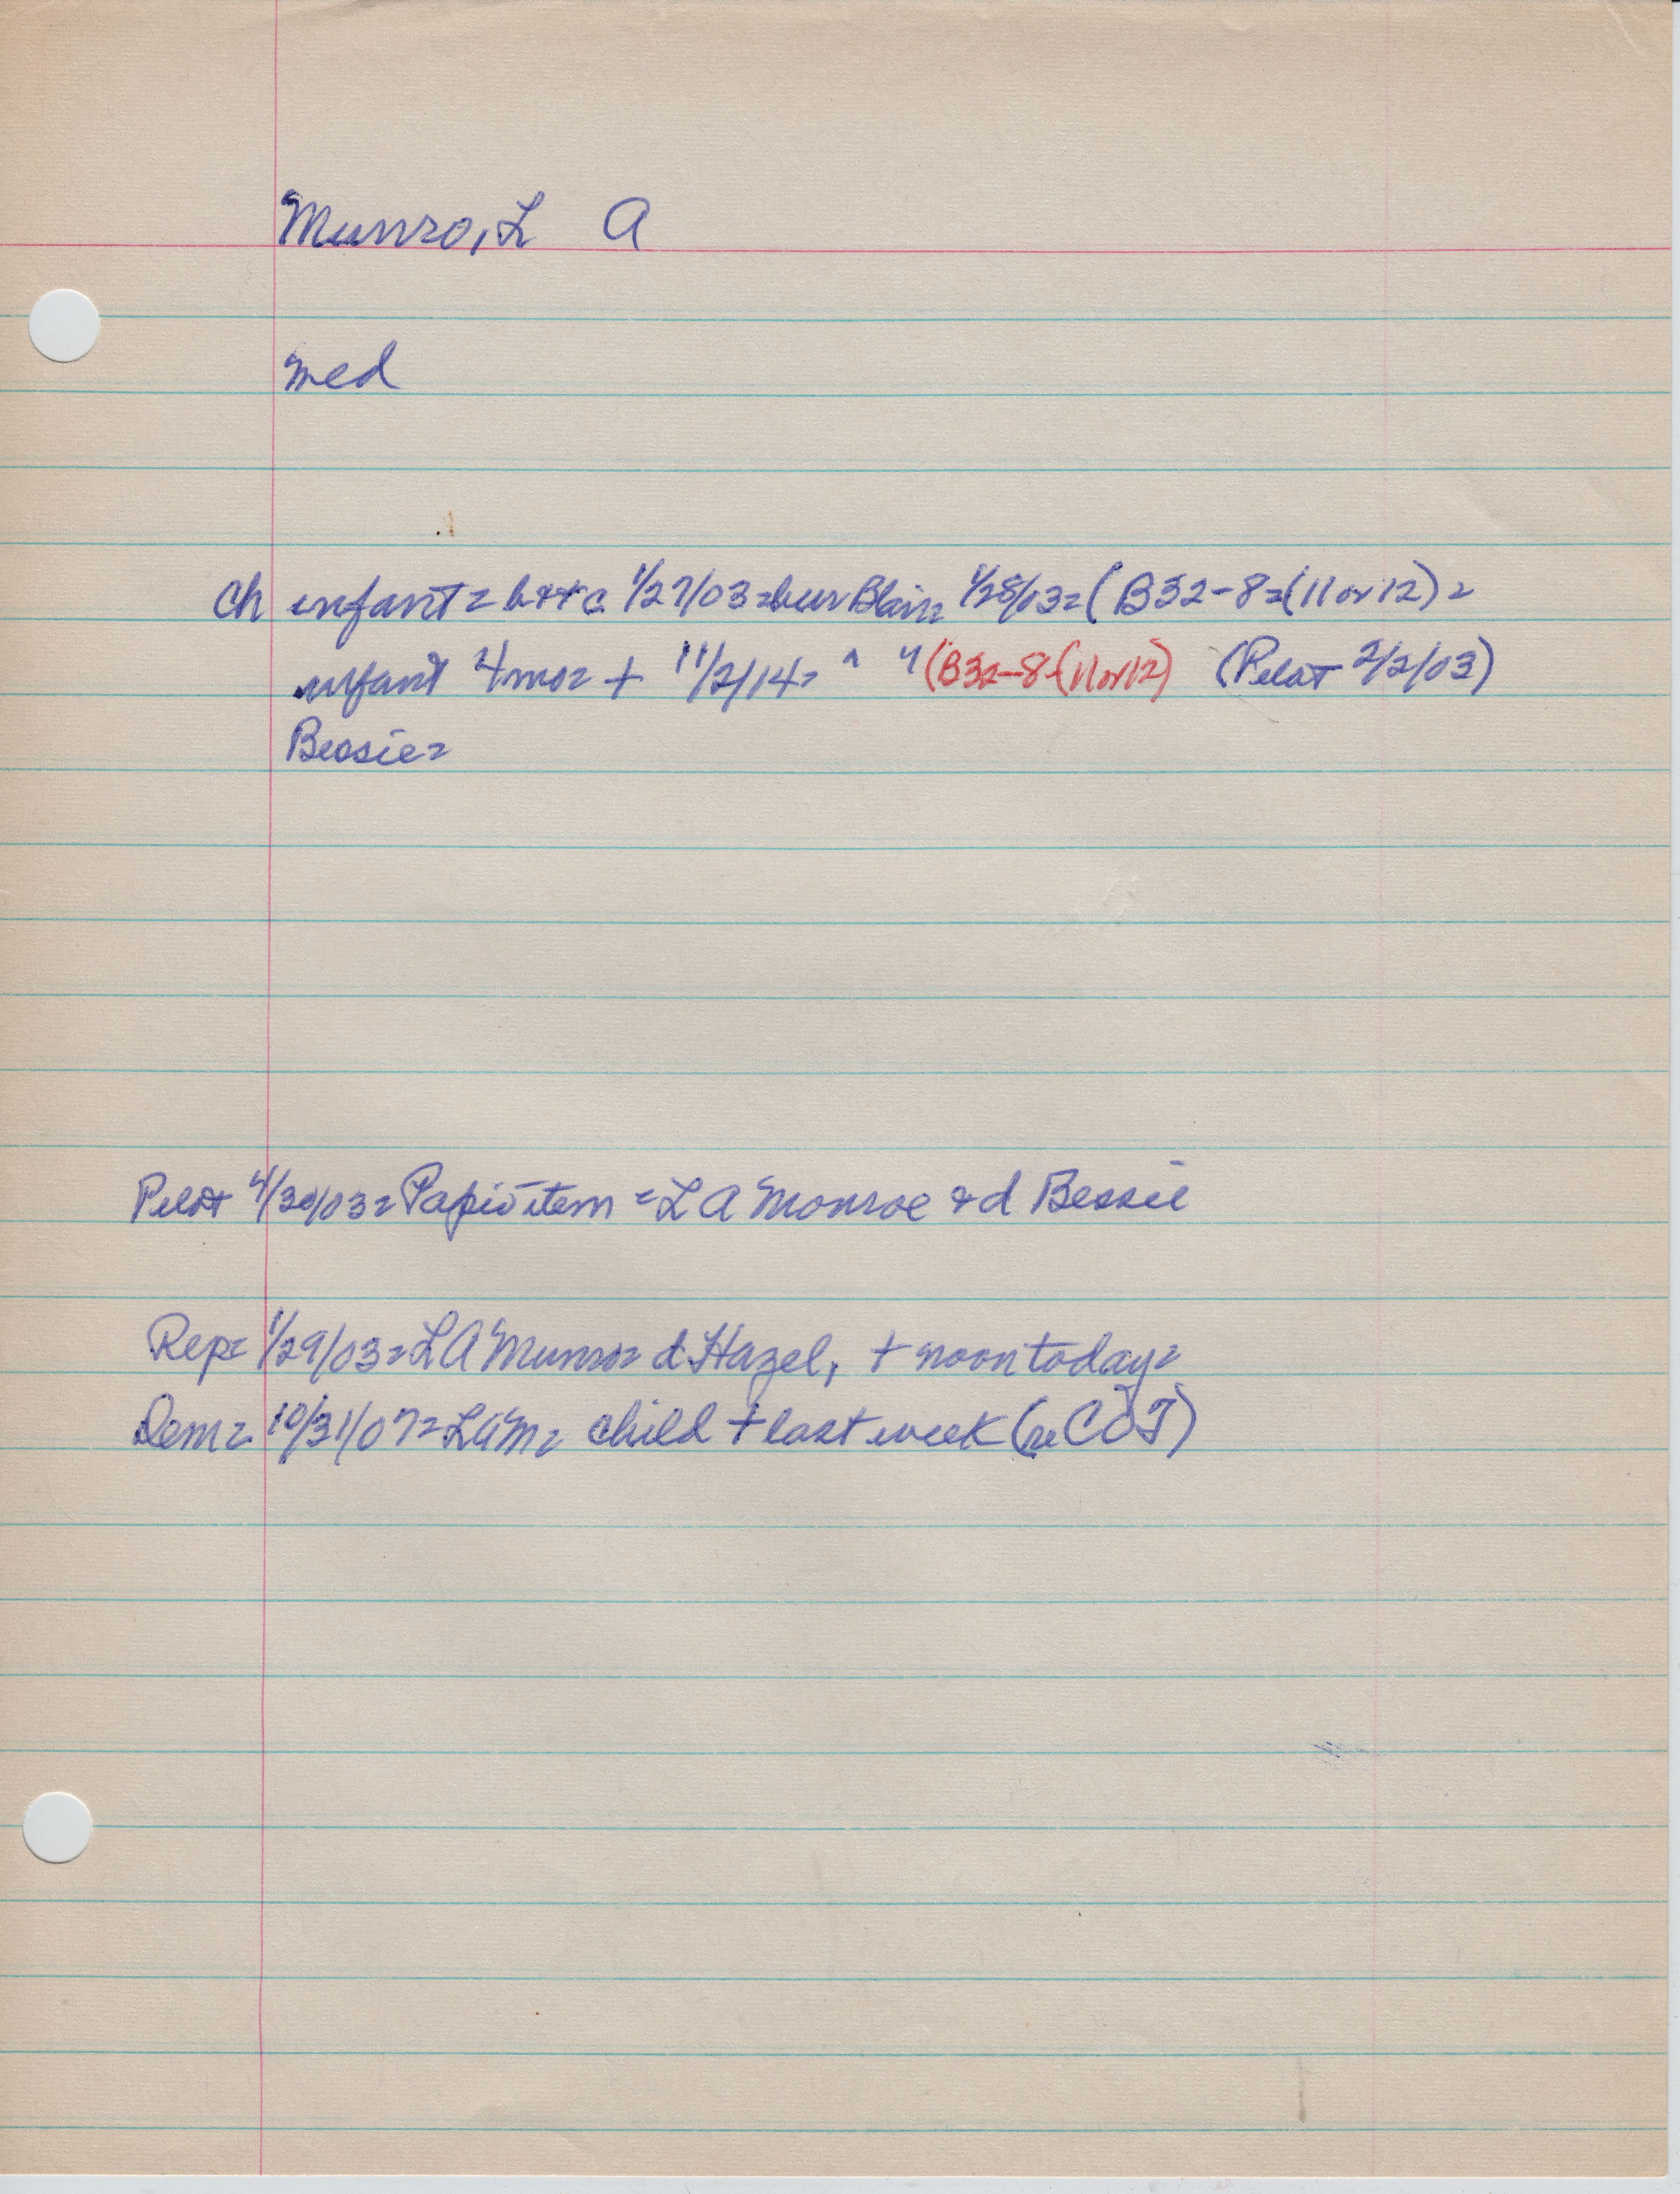 Munro, L A
med
Ch infant = b++c 1/27/03 = bur Blair = 1/28/03 = (B32-8=(11 or 12) =
infant 4 mo = + 11/2/14 = " " (B32-8-(11 or 12) (Pilot 2/2/03)
Bessie =
Pilot 4/30/03 = Papio item = L A Monroe & d Bessie
Rep = 1/29/03 = L A Munro = d Hazel, + noon today =
Dem = 10/31/07 = LAM = child + last week (re COT)